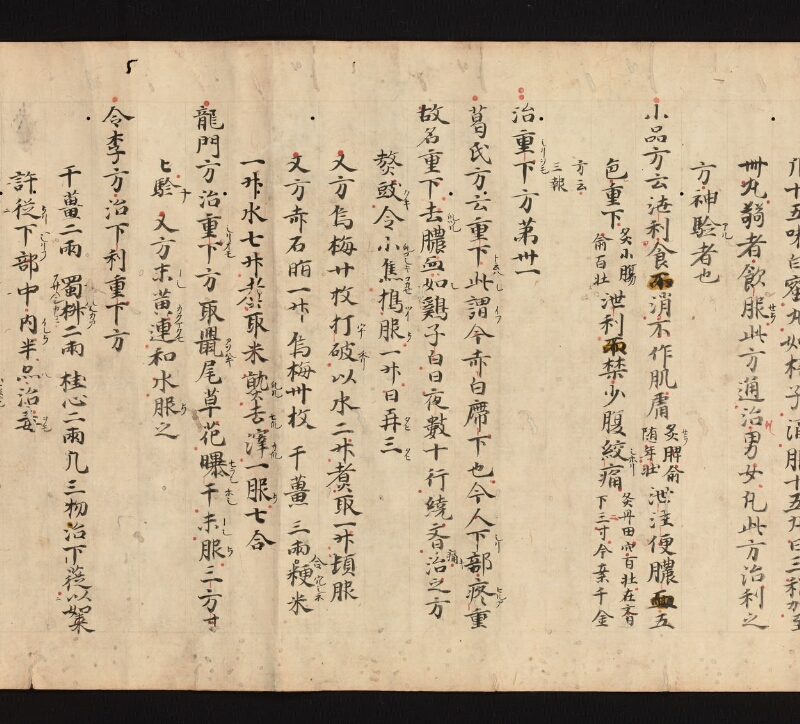 丸十五味白蜜丸如梧子酒服十五丸日三稍加至
卌丸蒻者飲服此方通治男女丸此方治利之
方神驗者也
小品方云洩利食不消不作肌膚灸脾俞随年壮泄注便膿血五
色重下灸小腸俞百壮泄利不禁少腹絞痛灸丹田穴百壮在斉下三寸今案千金
方云三報
治重下方第卅一
葛氏方云重下此謂今赤白滯下也令人下部疼重
故名重下去膿血如鷄子白日夜數十行繞斉痛治之方
熬豉令小焦搗服一升日再三
又方烏梅廿枚打破以水二升煮取一升頓服
又方赤石脂一升烏梅卅枚干薑三兩粳米
一升水七升煮取米熟去滓一服七合
龍門方治重下方取鼠尾草花曝干末服三方寸
匕驗又方末黄連和水服之
令李方治下利重下方
干薑二兩蜀椒二兩桂心二兩凡三物治下蓰以絮
許從下部中内半點治毒